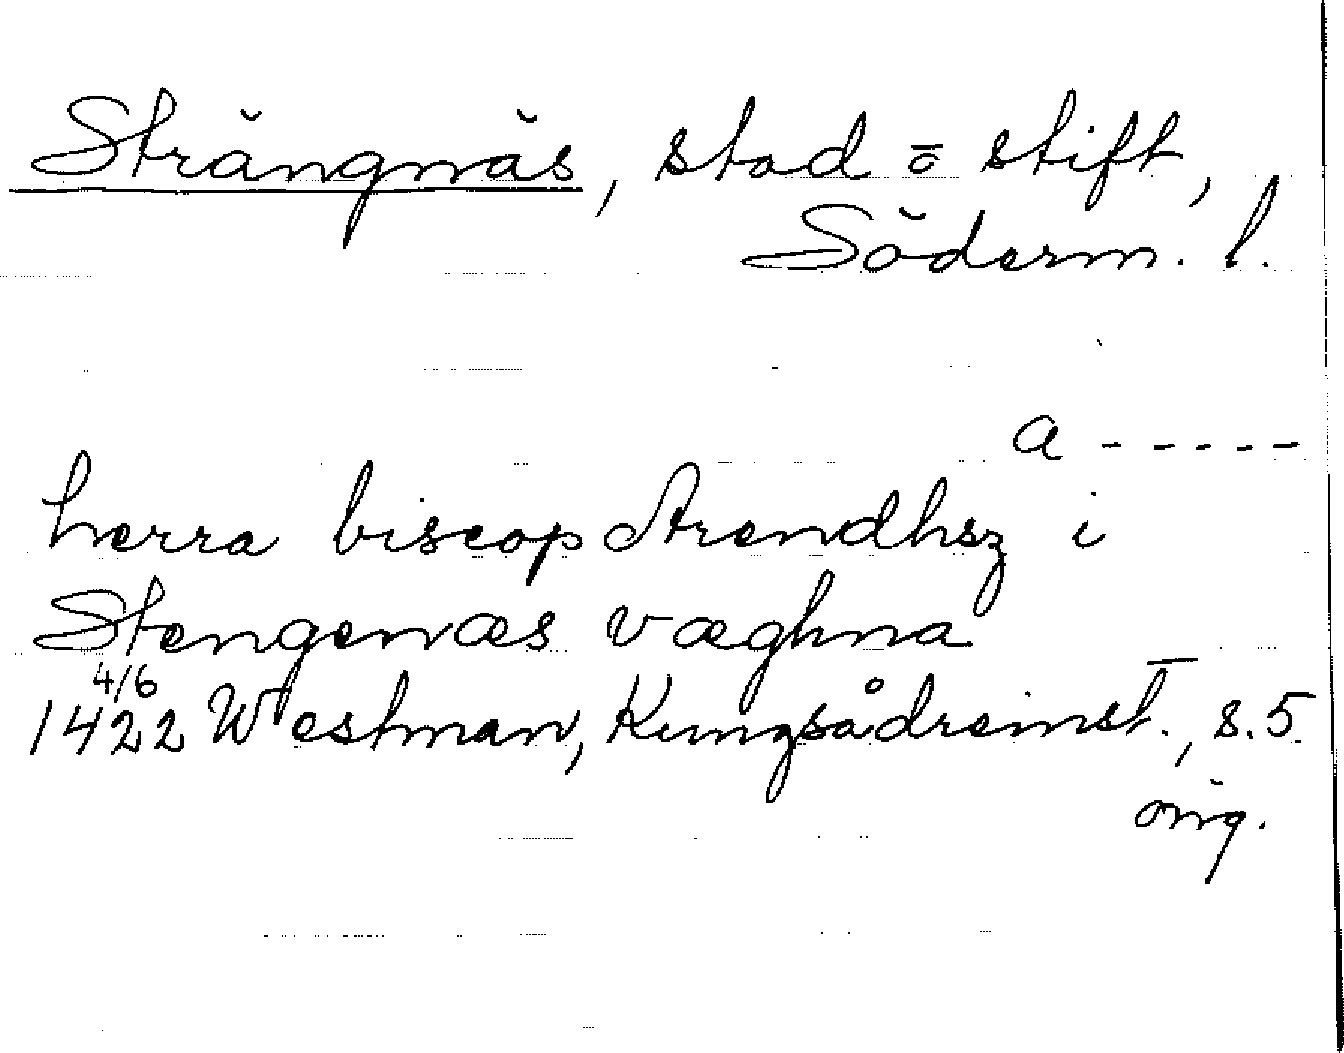 Strängnäs, stad o stift,
Söderm. l.
a -----
herra biscop Arendhsz i
Stengenæs væghna
4/6
1422 Westman, Kungsådreinst., s. 5
orig.